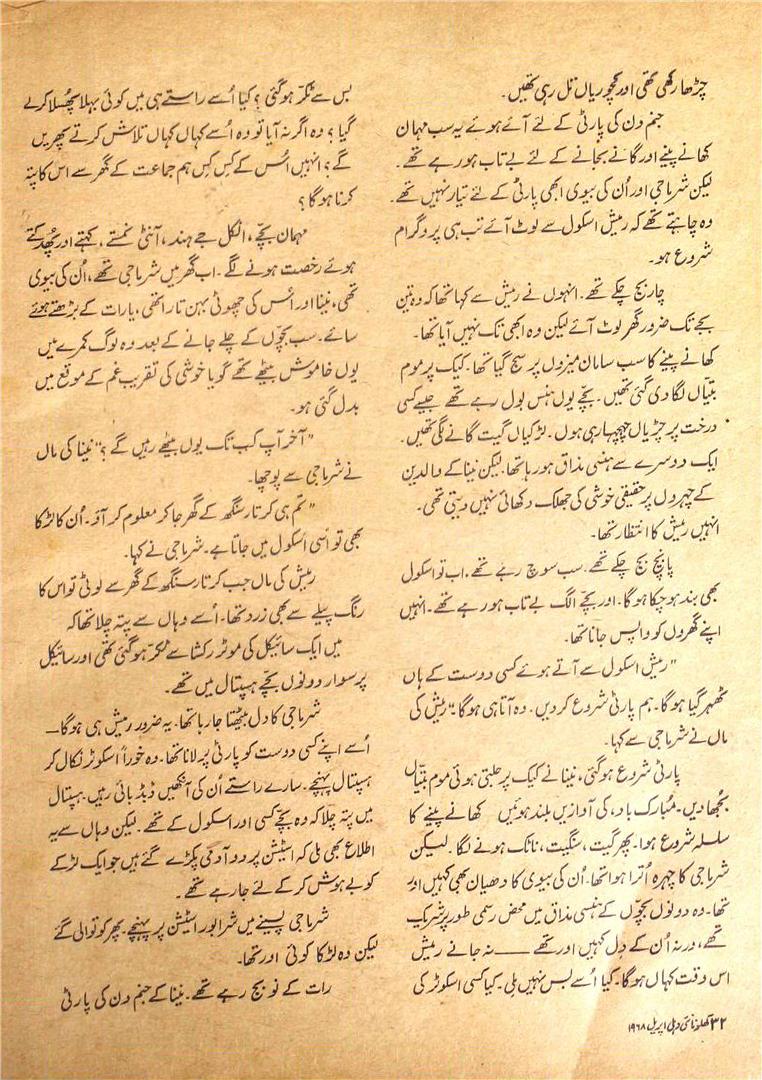 چڑھا رکھی تھی اور کچوریاں تل رہی تھیں۔
جنم دن کی پارٹی کے لئے آئے ہوئے یہ سب مہمان
کھانے پینے اور گانے بجانے کے لئے بے تاب ہو رہے تھے۔
لیکن شرما جی اور اُن کی بیوی ابھی پارٹی کے لئے تیار نہیں تھے۔
وہ چاہتے تھے کہ رمیش اسکول سے لوٹ آئے تب ہی پروگرام
شروع ہو۔
چار بج چکے تھے۔ انہوں نے رمیش سے کہا تھا کہ وہ تین
بجے تک ضرور گھر لوٹ آئے لیکن وہ ابھی تک نہیں آیا تھا۔
کھانے پینے کا سب سامان میزوں پر سج گیا تھا۔ کیک پر موم
بتیاں لگا دی گئی تھیں۔ بچے یوں ہنس بول رہے تھے جیسے کسی
درخت پر چڑیاں چہچہا رہی ہوں۔ لڑکیاں گیت گانے لگی تھیں۔
ایک دوسرے سے ہنسی مذاق ہو رہا تھا۔ لیکن نینا کے والدین
کے چہروں پر حقیقی خوشی کی جھلک دکھائی نہیں دیتی تھی۔
انہیں رمیش کا انتظار تھا۔
پانچ بج چکے تھے۔ سب سوچ رہے تھے، اب تو اسکول
بھی بند ہو چکا ہوگا۔ اور بچے الگ بے تاب ہو رہے تھے۔ انہیں
اپنے گھروں کو واپس جانا تھا۔
"رمیش اسکول سے آتے ہوئے کسی دوست کے ہاں
ٹھہر گیا ہوگا۔ ہم پارٹی شروع کر دیں۔ وہ آتا ہی ہوگا۔" رمیش کی
ماں نے شرما جی سے کہا۔
پارٹی شروع ہو گئی، نینا نے کیک پر جلتی ہوئی موم بتیاں
بجھا دیں۔ مُبارک باد، کی آوازیں بلند ہوئیں کھانے پینے کا
سلسلہ شروع ہوا۔ پھر گیت، سنگیت، ناٹک ہونے لگا۔ لیکن
شرما جی کا چہرہ اُترا ہوا تھا۔ اُن کی بیوی کا دھیان بھی کہیں اور
تھا۔ وہ دونوں بچوں کے ہنسی مذاق میں محض رسمی طور پر شریک
تھے، ورنہ اُن کے دِل کہیں اور تھے —— نہ جانے رمیش
اس وقت کہاں ہوگا۔ کیا اُسے بس نہیں ملی۔ کیا کسی اسکوٹر کی
بس سے ٹکر ہو گئی؟ کیا اُسے راستے ہی میں کوئی بہلا پھُسلا کر لے
گیا؟ وہ اگر نہ آیا تو وہ اُسے کہاں کہاں تلاش کرتے پھریں
گے؟ انہیں اُس کے کِس کِس ہم جماعت کے گھر سے اس کا پتہ
کرنا ہوگا؟
مہمان بچے، انکل جے ہند، آنٹی نمستے، کہتے اور پھُدکتے
ہوئے رخصت ہونے لگے۔ اب گھر میں شرما جی تھے، اُن کی بیوی
تھی، نینا اور اُس کی چھوٹی بہن تارا تھی، یا رات کے بڑھتے ہوئے
سائے۔ سب بچوں کے چلے جانے کے بعد وہ لوگ کمرے میں
یوں خاموش بیٹھے تھے گویا خوشی کی تقریب غم کے موقع میں
بدل گئی ہو۔
"آخر آپ کب تک یوں بیٹھے رہیں گے؟" نینا کی ماں
نے شرما جی سے پوچھا۔
"تم ہی کرتار سنگھ کے گھر جا کر معلوم کر آؤ۔ اُن کا لڑکا
بھی تو اُسی اسکول میں جاتا ہے۔ شرما جی نے کہا۔
رمیش کی ماں جب کرتار سنگھ کے گھر سے لوٹی تو اس کا
رنگ پیلے سے بھی زرد تھا۔ اُسے وہاں سے پتہ چلا تھا کہ
میں ایک سائیکل کی موٹر رکشا سے ٹکر ہو گئی تھی اور سائیکل
پر سوار دونوں بچے ہسپتال میں تھے۔
شرما جی کا دل بیٹھتا جا رہا تھا۔ یہ ضرور رمیش ہی ہوگا—
اُسے اپنے کسی دوست کو پارٹی پر لانا تھا۔ وہ فوراً اسکوٹر نکال کر
ہسپتال پہنچے۔ سارے راستے اُن کی آنکھیں ڈبڈبائی رہیں۔ ہسپتال
میں پتہ چلا کہ وہ بچے کسی اور اسکول کے تھے۔ لیکن وہاں سے یہ
اطلاع بھی ملی کہ اسٹیشن پر دو آدمی پکڑے گئے ہیں جو ایک لڑکے
کو بے ہوش کر کے لئے جا رہے تھے۔
شرما جی پسینے میں شرابور اسٹیشن پر پہنچے۔ پھر کوتوالی گئے
لیکن وہ لڑکا کوئی اور تھا۔
رات کے نو بج رہے تھے۔ نینا کے جنم دن کی پارٹی
۳۲ کھلونا نئی دہلی اپریل ۱۹۶۸